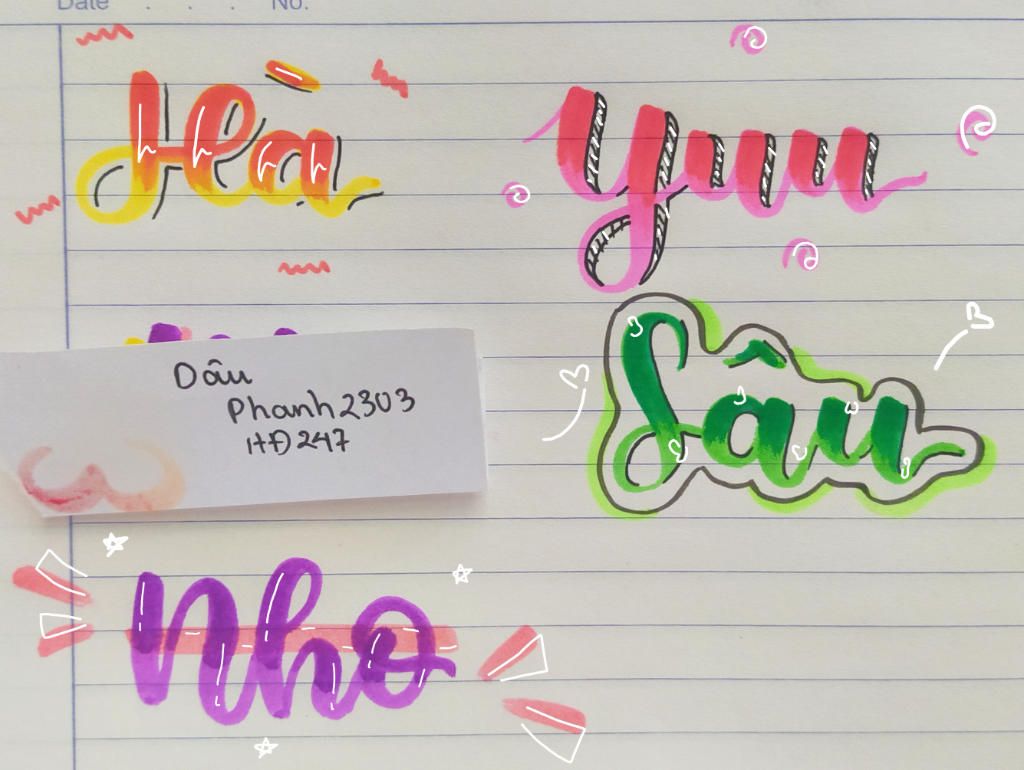 Date . . . No.
Hà
Yuu
Dâu
Phanh2303
HĐ247
Sâu
Nho